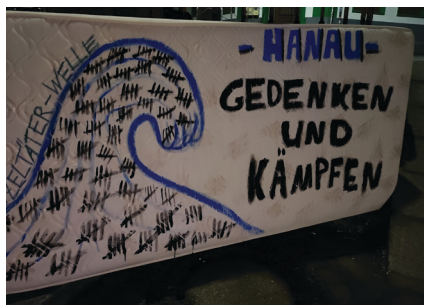 ZELTÄTER-WELLE
-HANAU-
GEDENKEN
UND
KÄMPFEN